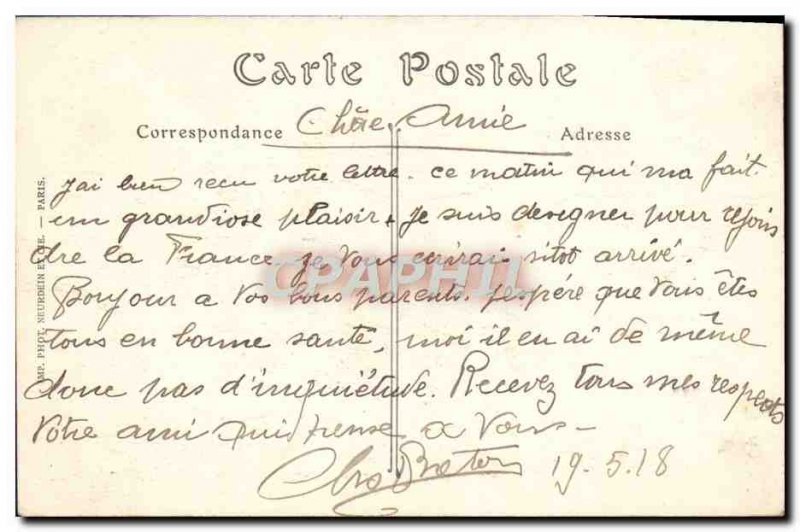 Carte Postale
Correspondance Chère Amie Adresse
j'ai bien recu votre lettre. ce matin qui ma fait
un grandiose plaisir. je suis designer pour rejoin
dre la France je vous ecrirais sitot arrivé.
Bonjour a vos bons parents. j'espére que vous êtes
tous en bonne santé, moi il en ai de même
donc pas d'inquiétude. Recevez tous mes respects
Votre ami qui pense a vous –
Chs Breton 19.5.18
IMP. PHOT. NEURDEIN ET CIE. — PARIS.
CPAPHIL